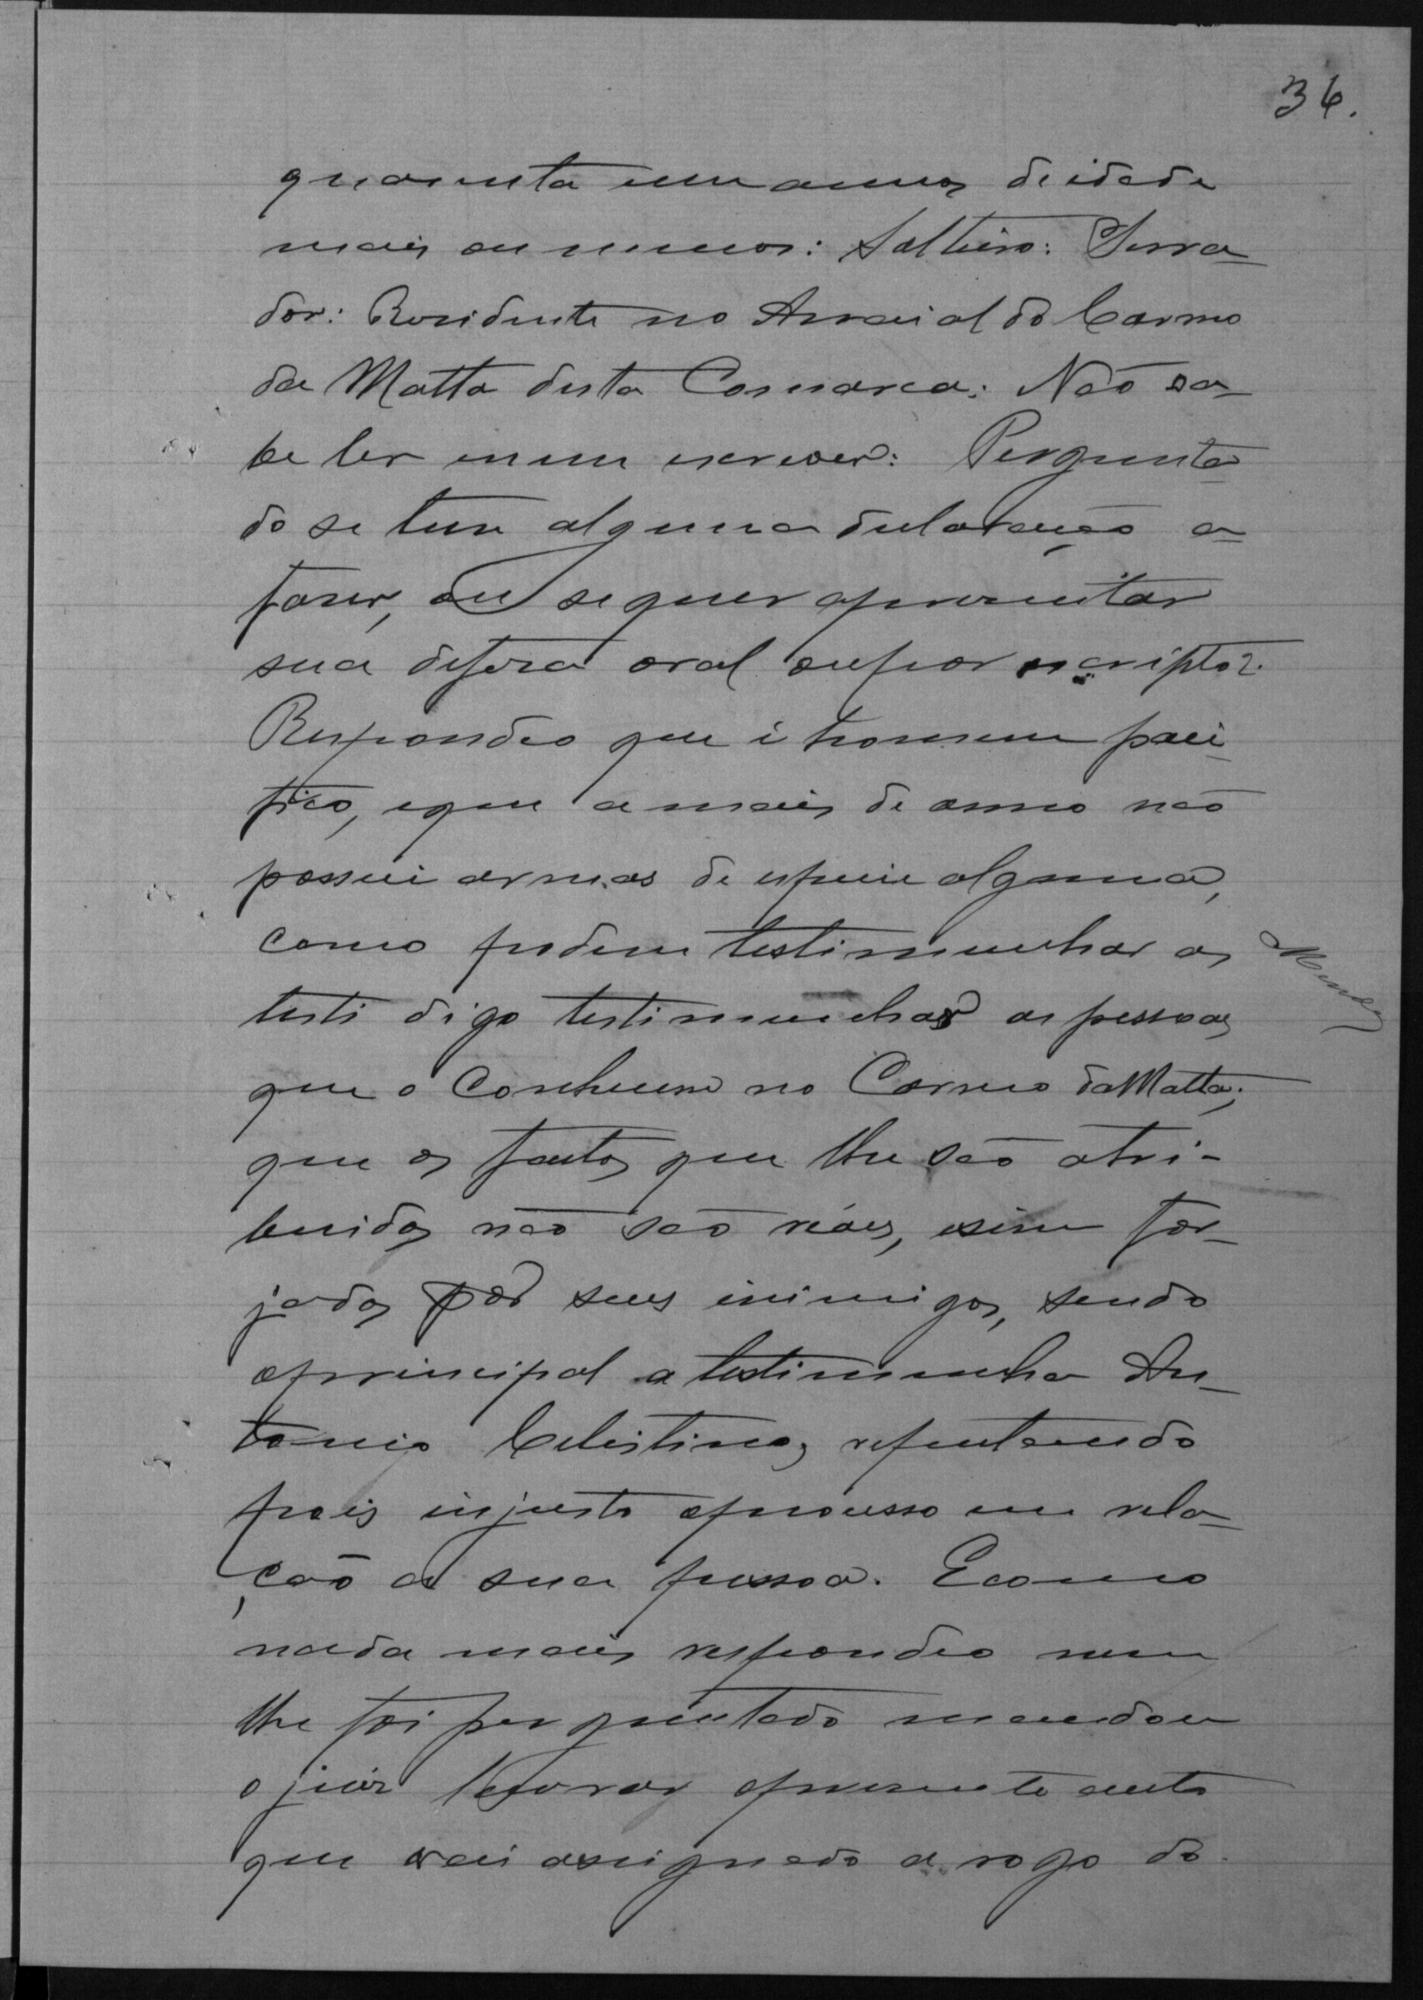 36.
quarenta um annos de idade
mais ou menos: Solteiro: Serra-
dor: Residente no Arraial do Carmo
da Matta desta Comarca: Não sa-
be ler nem escrever: Pergunta-
do se tem alguma declaração a
fazer, ou se quer apresentar
sua defesa oral ou por escripto?
Respondeo que é homem paci-
fico, e que a mais de anno não
possui armas de especie alguma,
como podem testimunhar as
testi digo testimunhar as pessoas
que o conhecem no Carmo da Matta;
que os factos que lhe são atri-
buidos não são reáes, e sim for-
jados por seus inimigos, sendo
o principal a testimunha An-
tonio Celestino, reputando
pois injusto o processo em rela-
ção a sua pessoa. E como
nada mais respondeo nem
lhe foi perguntado mandou
o juiz lavrar o presente auto
que vai assignado a rogo do